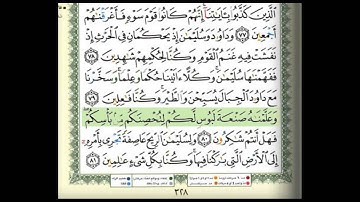 ٱلَّذِينَ كَذَّبُوا۟ بِـَٔايَـٰتِنَآ إِنَّهُمْ كَانُوا۟ قَوْمَ سَوْءٍ فَأَغْرَقْنَـٰهُمْ
أَجْمَعِينَ ٧٧ وَدَاوُۥدَ وَسُلَيْمَـٰنَ إِذْ يَحْكُمَانِ فِى ٱلْحَرْثِ إِذْ
نَفَشَتْ فِيهِ غَنَمُ ٱلْقَوْمِ وَكُنَّا لِحُكْمِهِمْ شَـٰهِدِينَ ٧٨
فَفَهَّمْنَـٰهَا سُلَيْمَـٰنَ وَكُلًّا ءَاتَيْنَا حُكْمًا وَعِلْمًا وَسَخَّرْنَا
مَعَ دَاوُۥدَ ٱلْجِبَالَ يُسَبِّحْنَ وَٱلطَّيْرَ وَكُنَّا فَـٰعِلِينَ ٧٩
وَعَلَّمْنَـٰهُ صَنْعَةَ لَبُوسٍ لَّكُمْ لِتُحْصِنَكُم مِّنۢ بَأْسِكُمْ
فَهَلْ أَنتُمْ شَـٰكِرُونَ ٨٠ وَلِسُلَيْمَـٰنَ ٱلرِّيحَ عَاصِفَةً تَجْرِى بِأَمْرِهِۦٓ
إِلَى ٱلْأَرْضِ ٱلَّتِى بَـٰرَكْنَا فِيهَا وَكُنَّا بِكُلِّ شَىْءٍ عَـٰلِمِينَ ٨١
٣٢٨